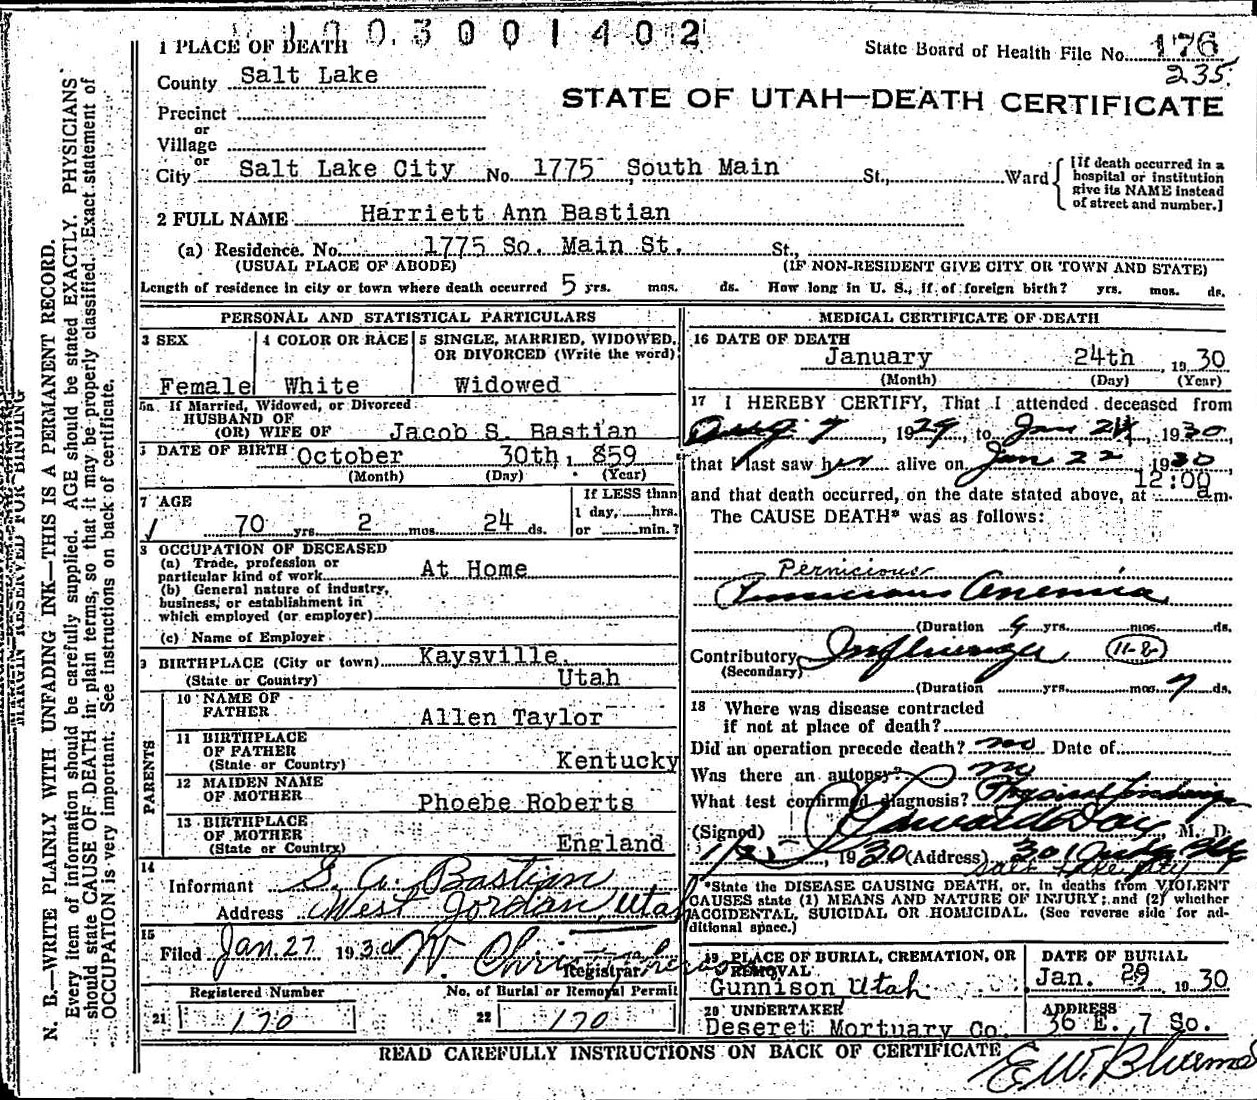 1003001402
1 PLACE OF DEATH
State Board of Health File No. 176
235
County Salt Lake
STATE OF UTAH—DEATH CERTIFICATE
Precinct
or
Village
or
City Salt Lake City No. 1775 South Main St., Ward
[If death occurred in a
hospital or institution
give its NAME instead
of street and number.]
2 FULL NAME Harriett Ann Bastian
(a) Residence. No. 1775 So. Main St. St.,
(USUAL PLACE OF ABODE) (IF NON-RESIDENT GIVE CITY OR TOWN AND STATE)
Length of residence in city or town where death occurred 5 yrs. mos. ds. How long in U. S., if of foreign birth? yrs. mos. ds.
PERSONAL AND STATISTICAL PARTICULARS
3 SEX
Female
4 COLOR OR RACE
White
5 SINGLE, MARRIED, WIDOWED,
OR DIVORCED (Write the word)
Widowed
5a If Married, Widowed, or Divorced
HUSBAND OF
(OR) WIFE OF Jacob S. Bastian
DATE OF BIRTH October 30th, 1859
(Month) (Day) (Year)
7 AGE
70 yrs. 2 mos. 24 ds.
If LESS than
1 day, hrs.
or min.?
8 OCCUPATION OF DECEASED
(a) Trade, profession or
particular kind of work At Home
(b) General nature of industry,
business, or establishment in
which employed (or employer)
(c) Name of Employer
9 BIRTHPLACE (City or town) Kaysville,
(State or Country) Utah
PARENTS
10 NAME OF
FATHER Allen Taylor
11 BIRTHPLACE
OF FATHER
(State or Country) Kentucky
12 MAIDEN NAME
OF MOTHER Phoebe Roberts
13 BIRTHPLACE
OF MOTHER
(State or Country) England
14
Informant S. A. Bastian
Address West Jordan, Utah
15
Filed Jan. 27 1930
Registrar
Registered Number
21 170
No. of Burial or Removal Permit
22 170
MEDICAL CERTIFICATE OF DEATH
16 DATE OF DEATH
January 24th, 1930
(Month) (Day) (Year)
17 I HEREBY CERTIFY, That I attended deceased from
Aug 7, 1929, to Jan 24, 1930,
that I last saw her alive on Jan 22 1930
12:00
and that death occurred, on the date stated above, at a.m.
The CAUSE DEATH* was as follows:
Pernicious
Pernicious Anemia
(Duration yrs. mos. ds.
Contributory Influenza (11-8-)
(Secondary)
(Duration yrs. mos. 7 ds.
18 Where was disease contracted
if not at place of death?
Did an operation precede death? no Date of
Was there an autopsy? no
What test confirmed diagnosis? Physical findings
(Signed) , M. D.
1930 (Address) 301 Judge Bldg
Salt Lake City
*State the DISEASE CAUSING DEATH, or, in deaths from VIOLENT
CAUSES state (1) MEANS AND NATURE OF INJURY; and (2) whether
ACCIDENTAL, SUICIDAL OR HOMICIDAL. (See reverse side for ad-
ditional space.)
19 PLACE OF BURIAL, CREMATION, OR
REMOVAL
Gunnison Utah
DATE OF BURIAL
Jan. 29 1930
20 UNDERTAKER
Deseret Mortuary Co.
ADDRESS
36 E. 7 So.
READ CAREFULLY INSTRUCTIONS ON BACK OF CERTIFICATE
MARGIN RESERVED FOR BINDING
N. B.—WRITE PLAINLY WITH UNFADING INK—THIS IS A PERMANENT RECORD.
Every item of information should be carefully supplied. AGE should be stated EXACTLY. PHYSICIANS
should state CAUSE OF DEATH in plain terms, so that it may be properly classified. Exact statement of
OCCUPATION is very important. See instructions on back of certificate.